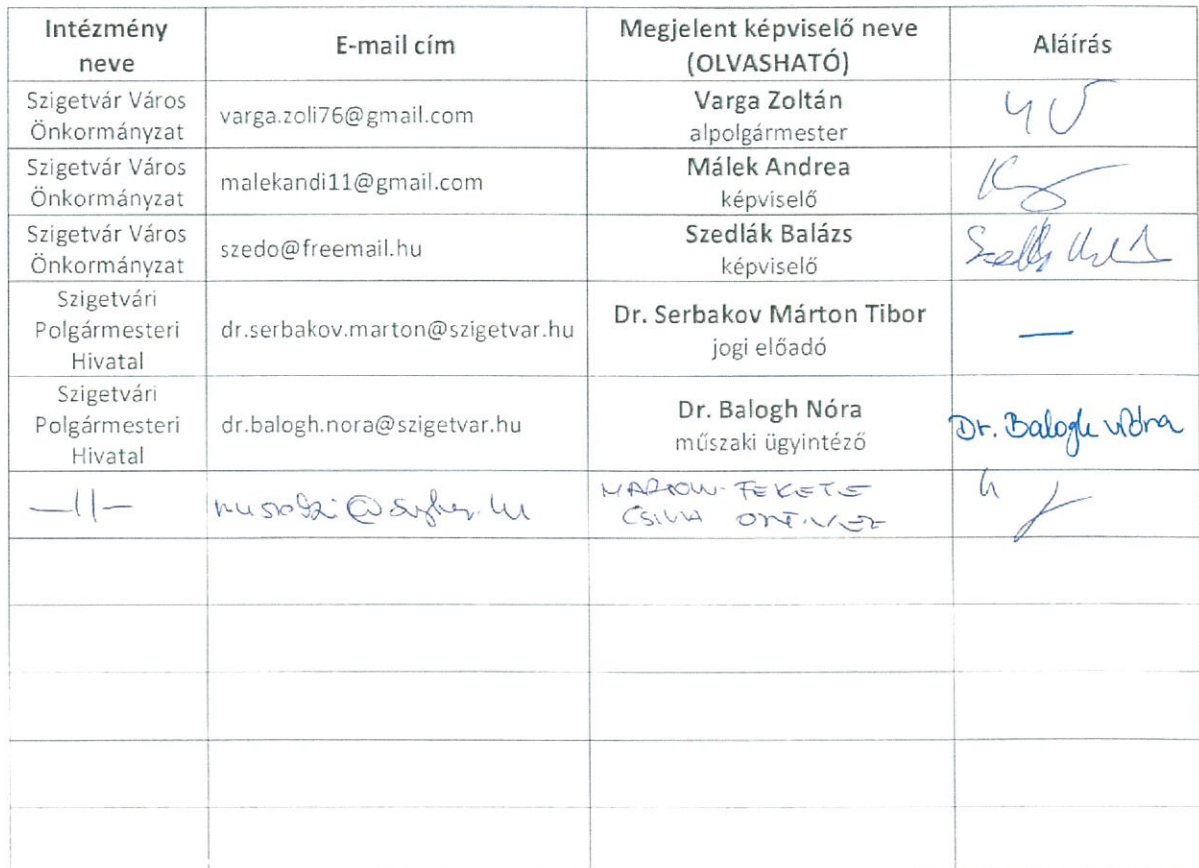 Intézmény
neve
E-mail cím
Megjelent képviselő neve
(OLVASHATÓ)
Aláírás
Szigetvár Város
Önkormányzat
varga.zoli76@gmail.com
Varga Zoltán
alpolgármester
Szigetvár Város
Önkormányzat
malekandi11@gmail.com
Málek Andrea
képviselő
Szigetvár Város
Önkormányzat
szedo@freemail.hu
Szedlák Balázs
képviselő
Szigetvári
Polgármesteri
Hivatal
dr.serbakov.marton@szigetvar.hu
Dr. Serbakov Márton Tibor
jogi előadó
—
Szigetvári
Polgármesteri
Hivatal
dr.balogh.nora@szigetvar.hu
Dr. Balogh Nóra
műszaki ügyintéző
Dr. Balogh Nóra
—||—
FEKETE